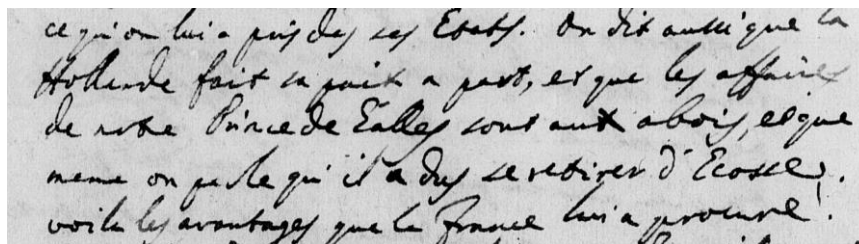 ce qu'on lui a pris des ses Etats. On dit aussi que la
Hollande fait sa paix a part, et que les affaires
de notre Prince de Galles sont aux abois, et que
meme on parle qu'il a du se retirer d'Ecosse.
voila les avantages que la France lui a procuré!